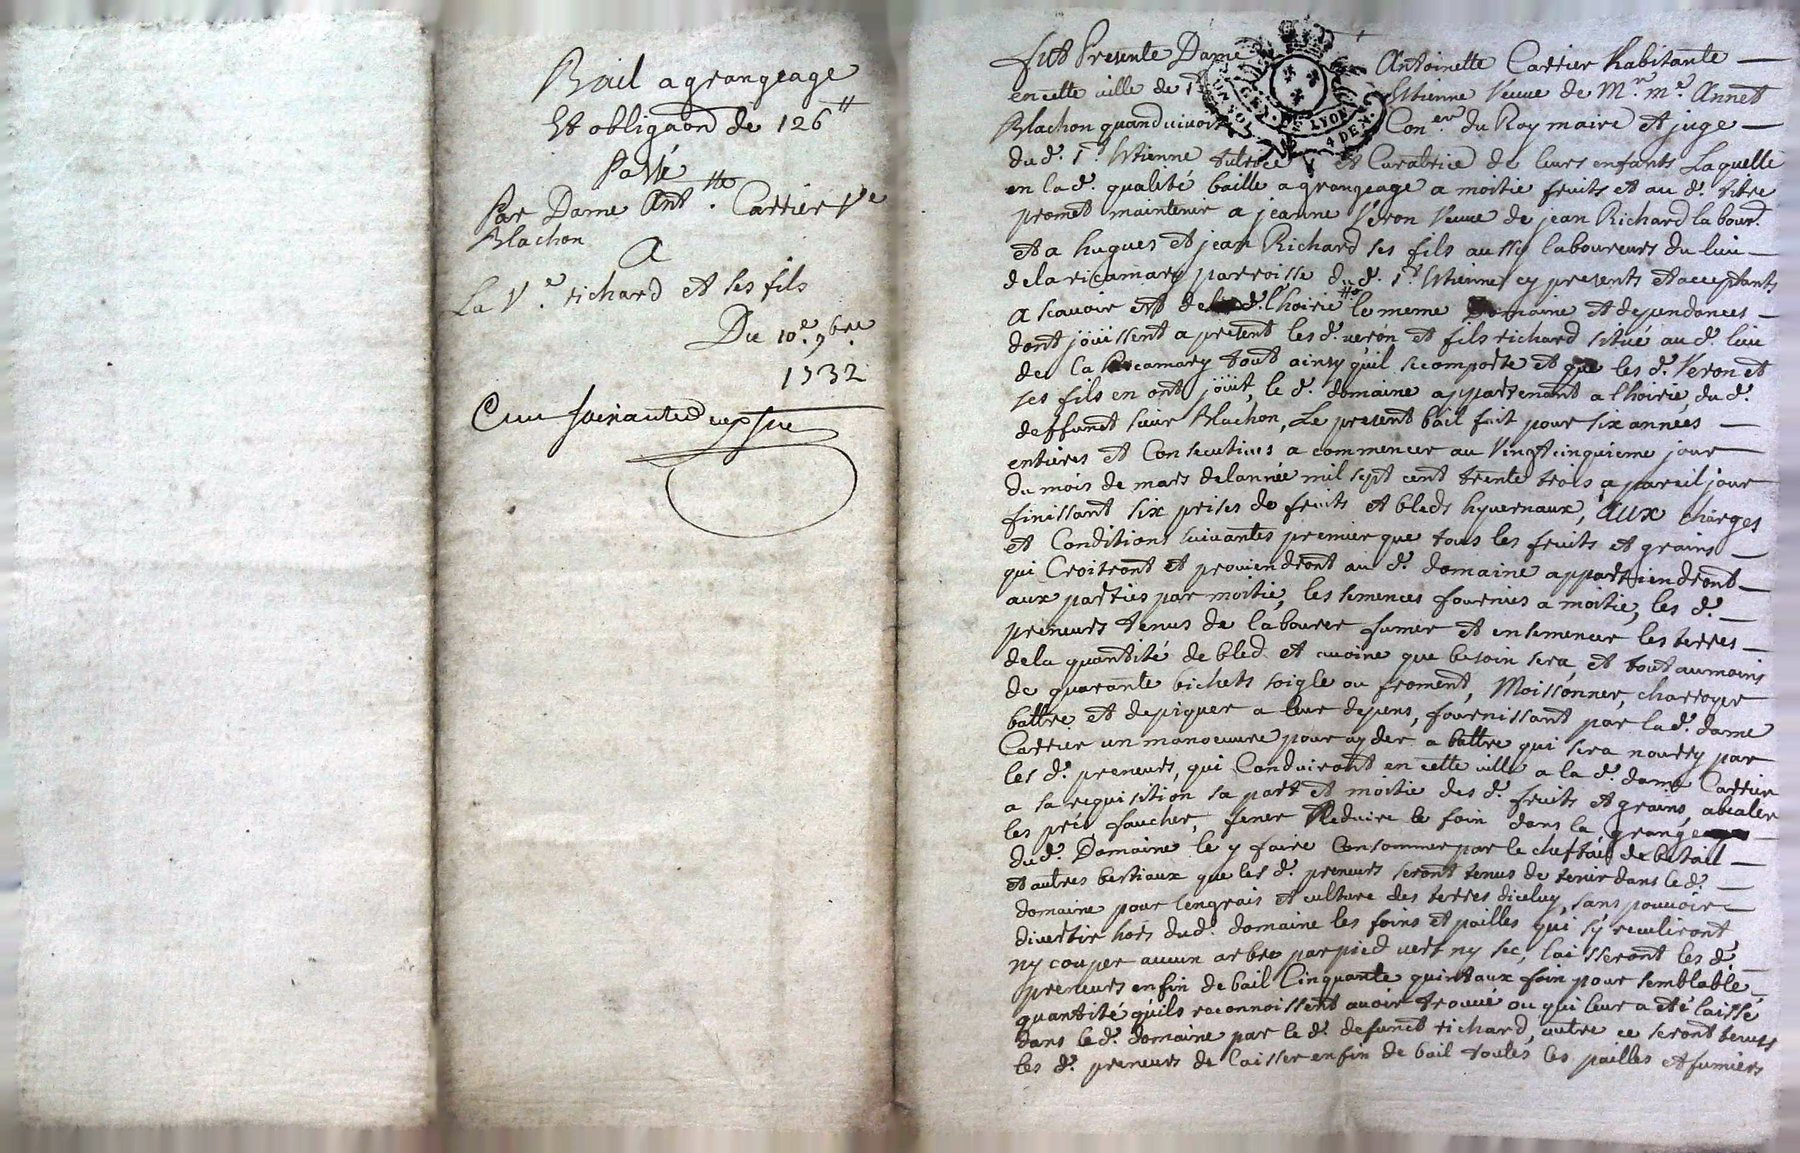 Bail a grangeage
Et obligaon de 126 ₶
Passé
Par Dame Ant.tte Carrier Ve
Blachon
A
La Ve. richard et ses fils
Du 10e. 9bre.
1732
fut Presente Dame Antoinette Carrier habitante
en cette ville de St Etienne Veuve de Mr. me. Annet
Blachon quand vivoit Coner du Roy maire et juge
du d. St. Etienne tutrice et Curatrice de leurs enfants Laquelle
en la d. qualité baille a grangeage a moitie fruits et au d. titre
promet maintenir a jeanne Veron Veuve de jean Richard labour.
et a hugues et jean Richard ses fils aussy laboureurs du lieu
de la ricamary parroisse du d. St. Etienne cy presents et acceptants
A scavoir est de la d. l'hoirie le meme Domaine et dependances
dont joüissent a present les d. veron et fils richard situé au d. lieu
de la Ricamary tout ainsy qu'il se comporte et que les d. Veron et
ses fils en ont joüit, le d. domaine appartenant a l'hoirie du d.
deffunct sieur Blachon, Le present bail fait pour six années
entieres et Consecutives a commencer au Vingt cinquieme jour
du mois de mars de lannée mil sept cent trente trois a pareil jour
finissant six prises de fruits et bleds hyvernaux, aux charges
et Conditions suivantes premier que tous les fruits et grains
qui Croitront et proviendront au d. domaine appartiendront
aux parties par moitie, les semences fournies a moitie, les d.
preneurs tenus de labourer fumer et ensemencer les terres
de la quantité de bled et avoine que besoin sera, et tout aumoins
de quarante bichets soigle ou froment, Moissonner, charroyer
battre et depiquer a leur depens, fournissant par la d. dame
Carrier un manoeuvre pour ayder a battre qui sera nourry par
les d. preneurs, qui Conduiront en cette ville a la d. dame Carrier
a sa requisition sa part et moitie des d. fruits et grains, abealer
les prés, faucher, fener Reduire le foin dans la grange
du d. Domaine le y faire Consommer par le cheftail de betail
et autres bestiaux que les d. preneurs seront tenus de tenir dans le d.
domaine pour lengrais et culture des terres diceluy, sans pouvoir
divertir hors dud. domaine les foins et pailles qui s'y recueliront
ny couper aucun arbre par pied vert ny sec, laisseront les d.
preneurs en fin de bail Cinquante quintaux foin pour semblable
quantité qu'ils reconnoissent avoir trouvé ou qui leur a eté laissé
dans le d. domaine par le d. defunct richard, outre ce seront tenus
les d. preneurs de laisser en fin de bail toutes les pailles et fumiers